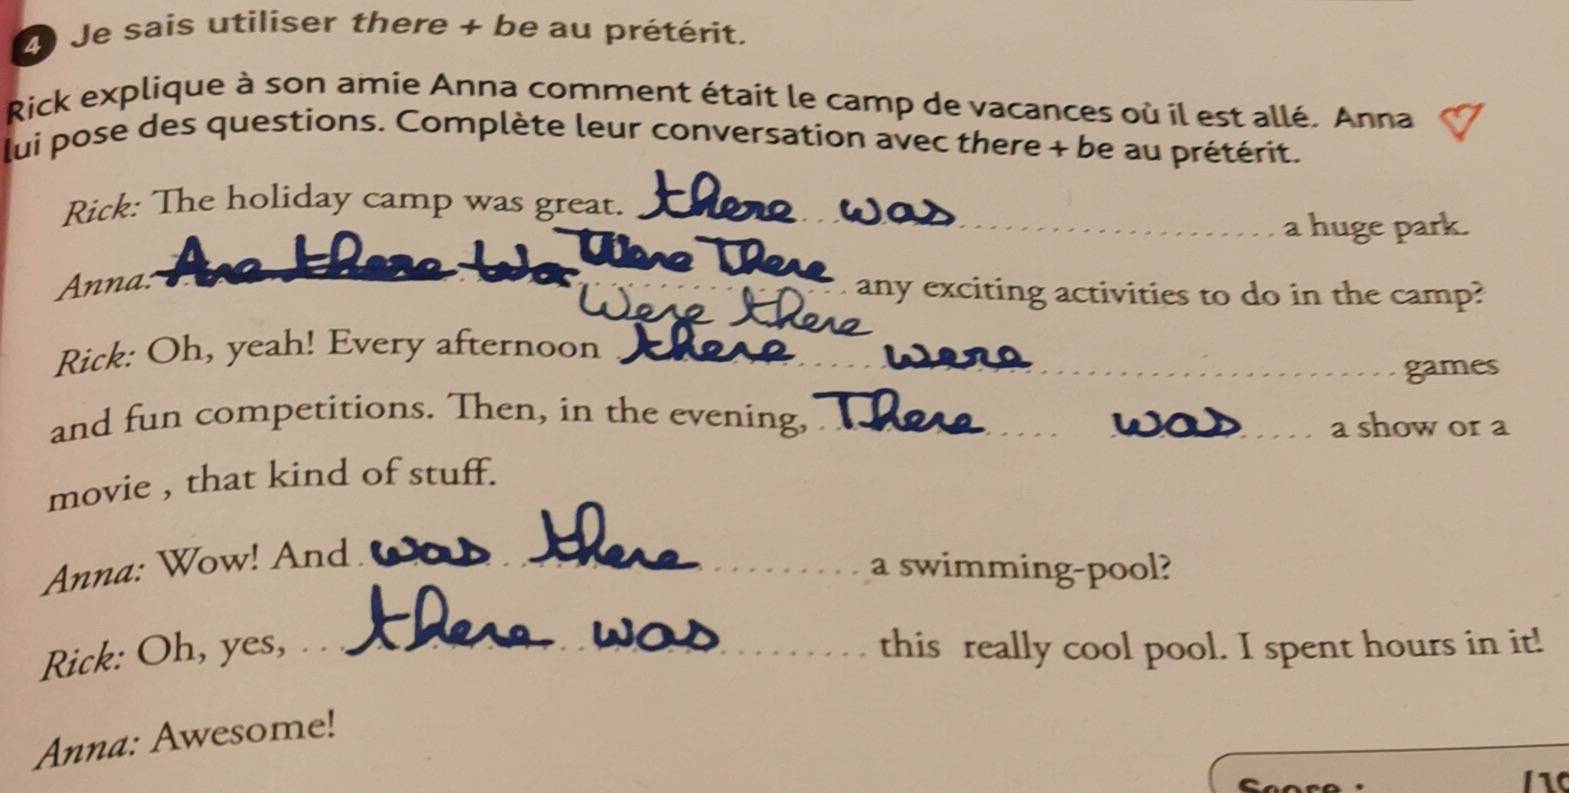 4 Je sais utiliser there + be au prétérit.
Rick explique à son amie Anna comment était le camp de vacances où il est allé. Anna
lui pose des questions. Complète leur conversation avec there + be au prétérit.
Rick: The holiday camp was great. there was a huge park.
Anna: Are there Were There any exciting activities to do in the camp?
Were there
Rick: Oh, yeah! Every afternoon there were games
and fun competitions. Then, in the evening, There was a show or a
movie , that kind of stuff.
Anna: Wow! And was there a swimming-pool?
Rick: Oh, yes, there was this really cool pool. I spent hours in it!
Anna: Awesome!
Score : /10